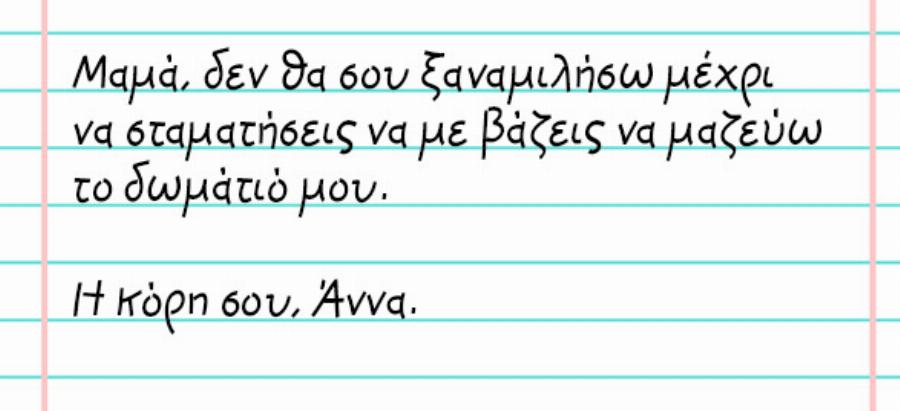 Μαμά, δεν θα σου ξαναμιλήσω μέχρι
να σταματήσεις να με βάζεις να μαζεύω
το δωμάτιό μου.
Η κόρη σου, Άννα.